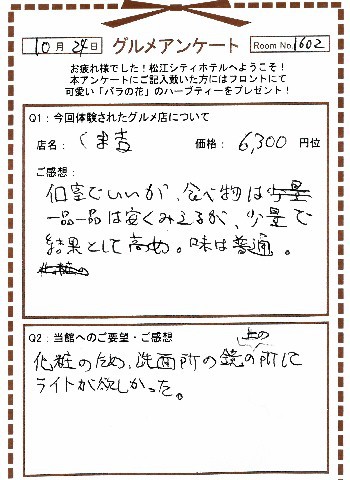 10月24日 グルメアンケート Room No.1602
お疲れ様でした!松江シティホテルへようこそ!
本アンケートにご記入戴いた方にはフロントにて
可愛い「バラの花」のハーブティーをプレゼント!
Q1:今回体験されたグルメ店について
店名: くま吉 価格: 6,300 円位
ご感想:
個室でいいが、食べ物は
一品一品は安くみえるが、少量で
結果として高め。味は普通。
Q2:当館へのご要望・ご感想
化粧のため、洗面所の鏡の上の所に
ライトが欲しかった。